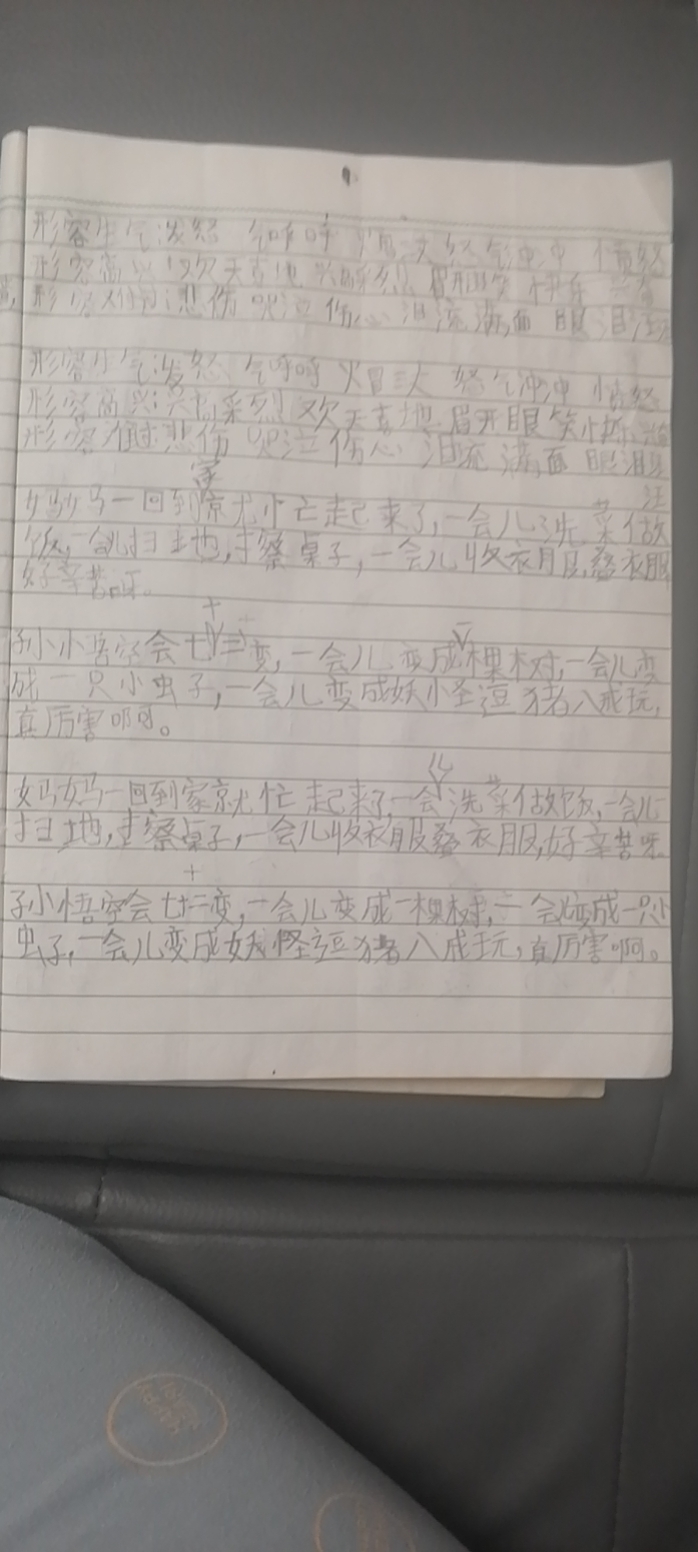 形容生气发怒 气呼呼 冒 火 怒气冲冲 愤怒
形容高兴 欢天喜地 兴高采烈 眉开眼笑 快乐
形容 悲伤 哭泣 伤心 泪流满面 眼泪汪
形容生气发怒 气呼呼 冒三丈 怒气冲冲 愤怒
形容高兴 兴高采烈 欢天喜地 眉开眼笑 快乐
形容难过悲伤 哭泣 伤心 泪流满面 眼泪
汪
家
妈妈一回到京尤忙起来了,一会儿洗菜做
饭,一会儿扫土地,擦桌子,一会儿收衣服,叠衣服
好辛苦呀。
十
孙小小悟空会七 二变,一会儿变成棵树,一会儿变
成一只小虫子,一会儿变成妖小怪逗猪八戒玩,
真厉害啊。
儿
妈妈一回到家就忙起来了,一会洗菜做饭,一会儿
扫地,擦桌子,一会儿收衣服叠衣服,好辛苦呀
十
孙小悟空会七二变,一会儿变成一棵树,一会变成一只小
虫子,一会儿变成妖怪逗猪八戒玩,真厉害啊。